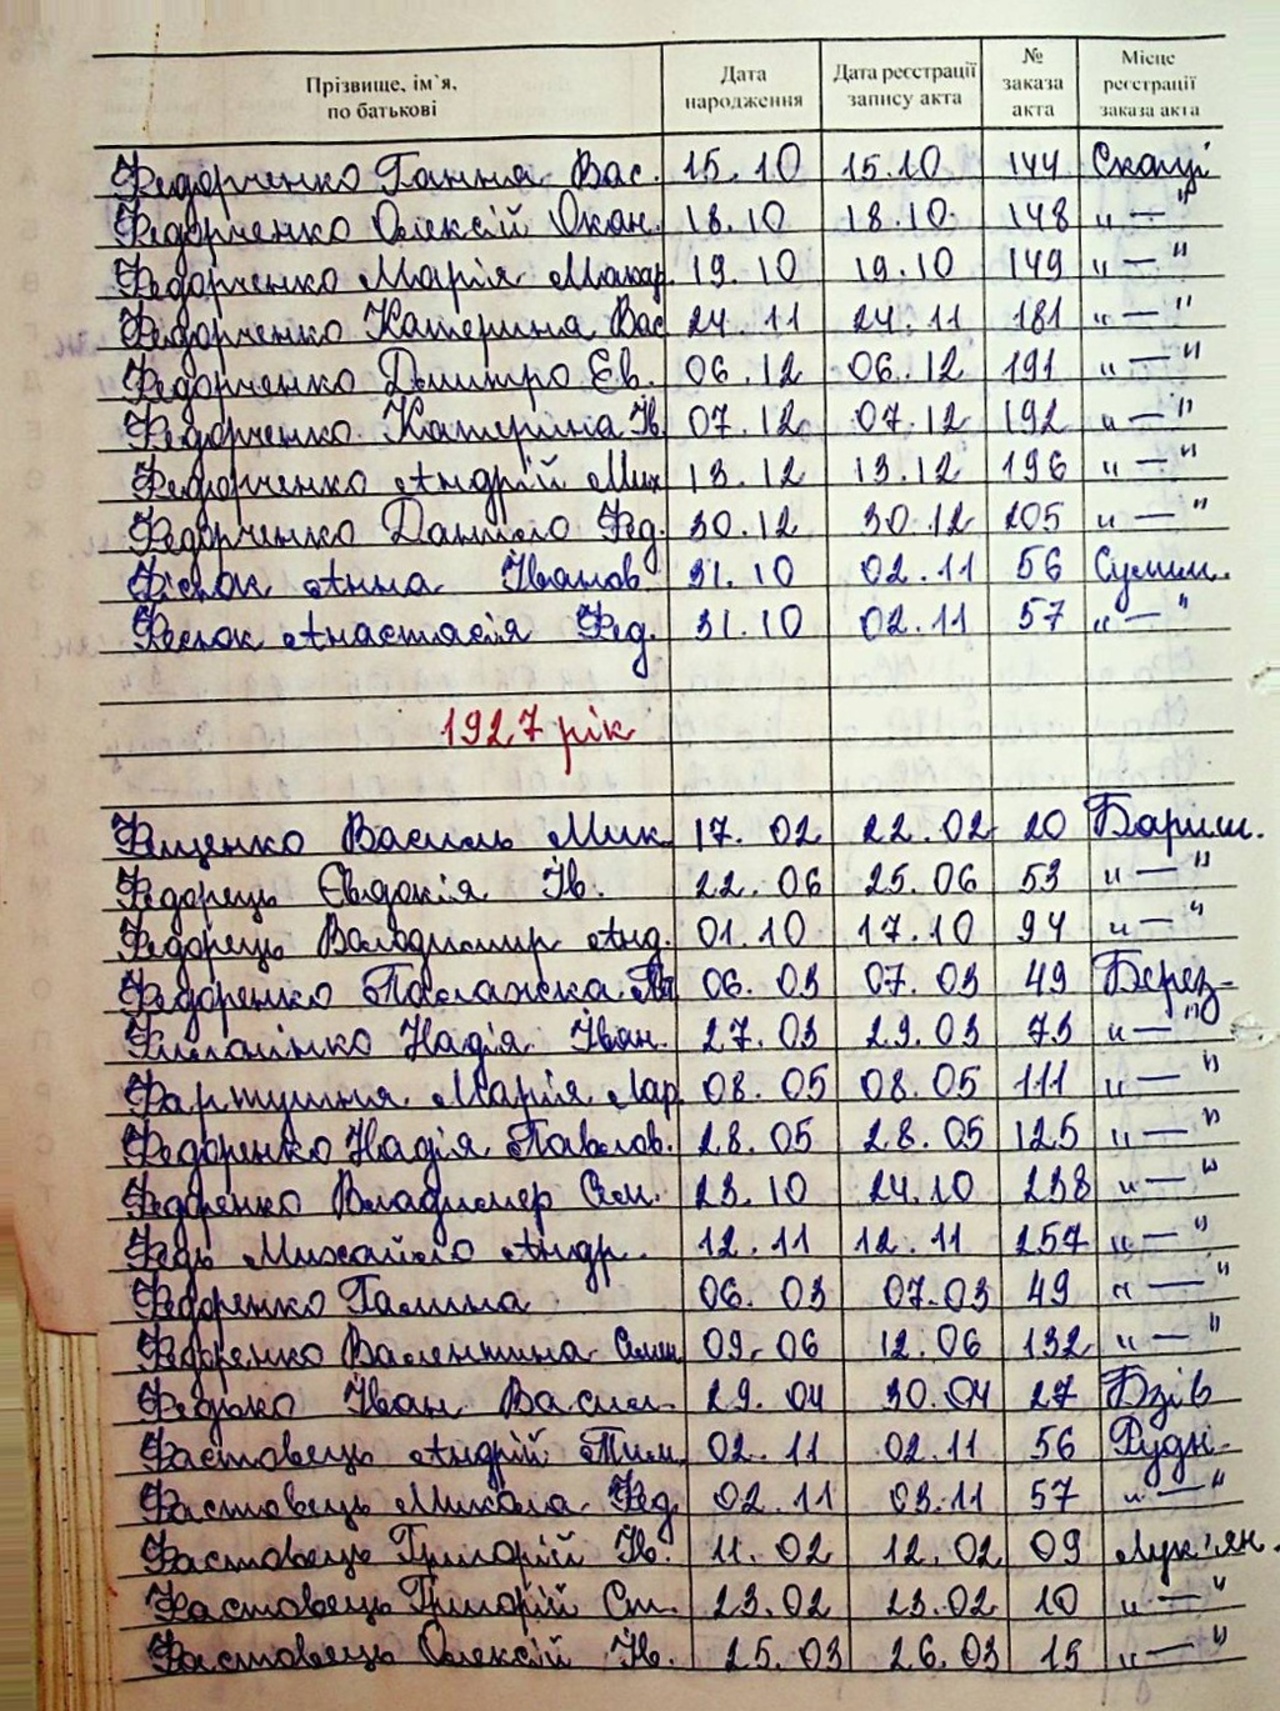 Прізвище, ім`я, по батькові Дата народження Дата реєстрації запису акта № заказа акта Місце реєстрації заказа акта
Федорченко Ганна Вас. 15.10 15.10 144 Скопці
Федорченко Олексій Окан. 18.10 18.10 148 „—"
Федорченко Марія Макар. 19.10 19.10 149 „—"
Федорченко Катерина Вас 24.11 24.11 181 „—"
Федорченко Дмитро Єв. 06.12 06.12 191 „—"
Федорченко Катерина Ів 07.12 07.12 192 „—"
Федорченко Андрій Мих 13.12 13.12 196 „—"
Федорченко Данило Фед. 30.12 30.12 205 „—"
Фісюк Анна Іванов. 31.10 02.11 56 Сулим.
Фесюк Анастасія Фед. 31.10 02.11 57 „—"
1927 рік
Фещенко Василь Мик. 17.02 22.02 20 Бариш.
Федорець Євдокія Ів. 22.06 25.06 53 „—"
Федорець Володимир Анд. 01.10 17.10 94 „—"
Федоренко Палажка 06.03 07.03 49 Берез-
Филонінко Надія Іван. 27.03 29.03 73 „—"
Фартушня Марія Лар. 08.05 08.05 111 „—"
Федоренко Надія Павлов. 28.05 28.05 125 „—"
Федоренко Владимер Сем. 23.10 24.10 238 „—"
Федь Михайло Андр. 12.11 12.11 257 „—"
Федоренко Галина 06.03 07.03 49 „—"
Федоренко Валентина Семен 09.06 12.06 132 „—"
Федько Іван Васил. 29.04 30.04 27 Бзів
Фастовець Андрій Тим. 02.11 02.11 56 Рудн-
Фастовець Микола Фед. 02.11 03.11 57 „—"
Фастовець Григорій Ів. 11.02 12.02 09 Лук'ян.
Фастовець Григорій Ст. 23.02 23.02 10 „—"
Фастовець Олексій Ів. 25.03 26.03 15 „—"